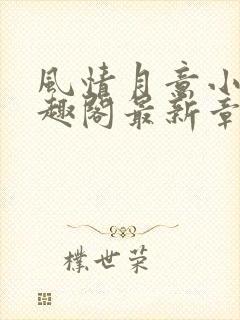 風情月意小
趣閣最新章
樸世榮